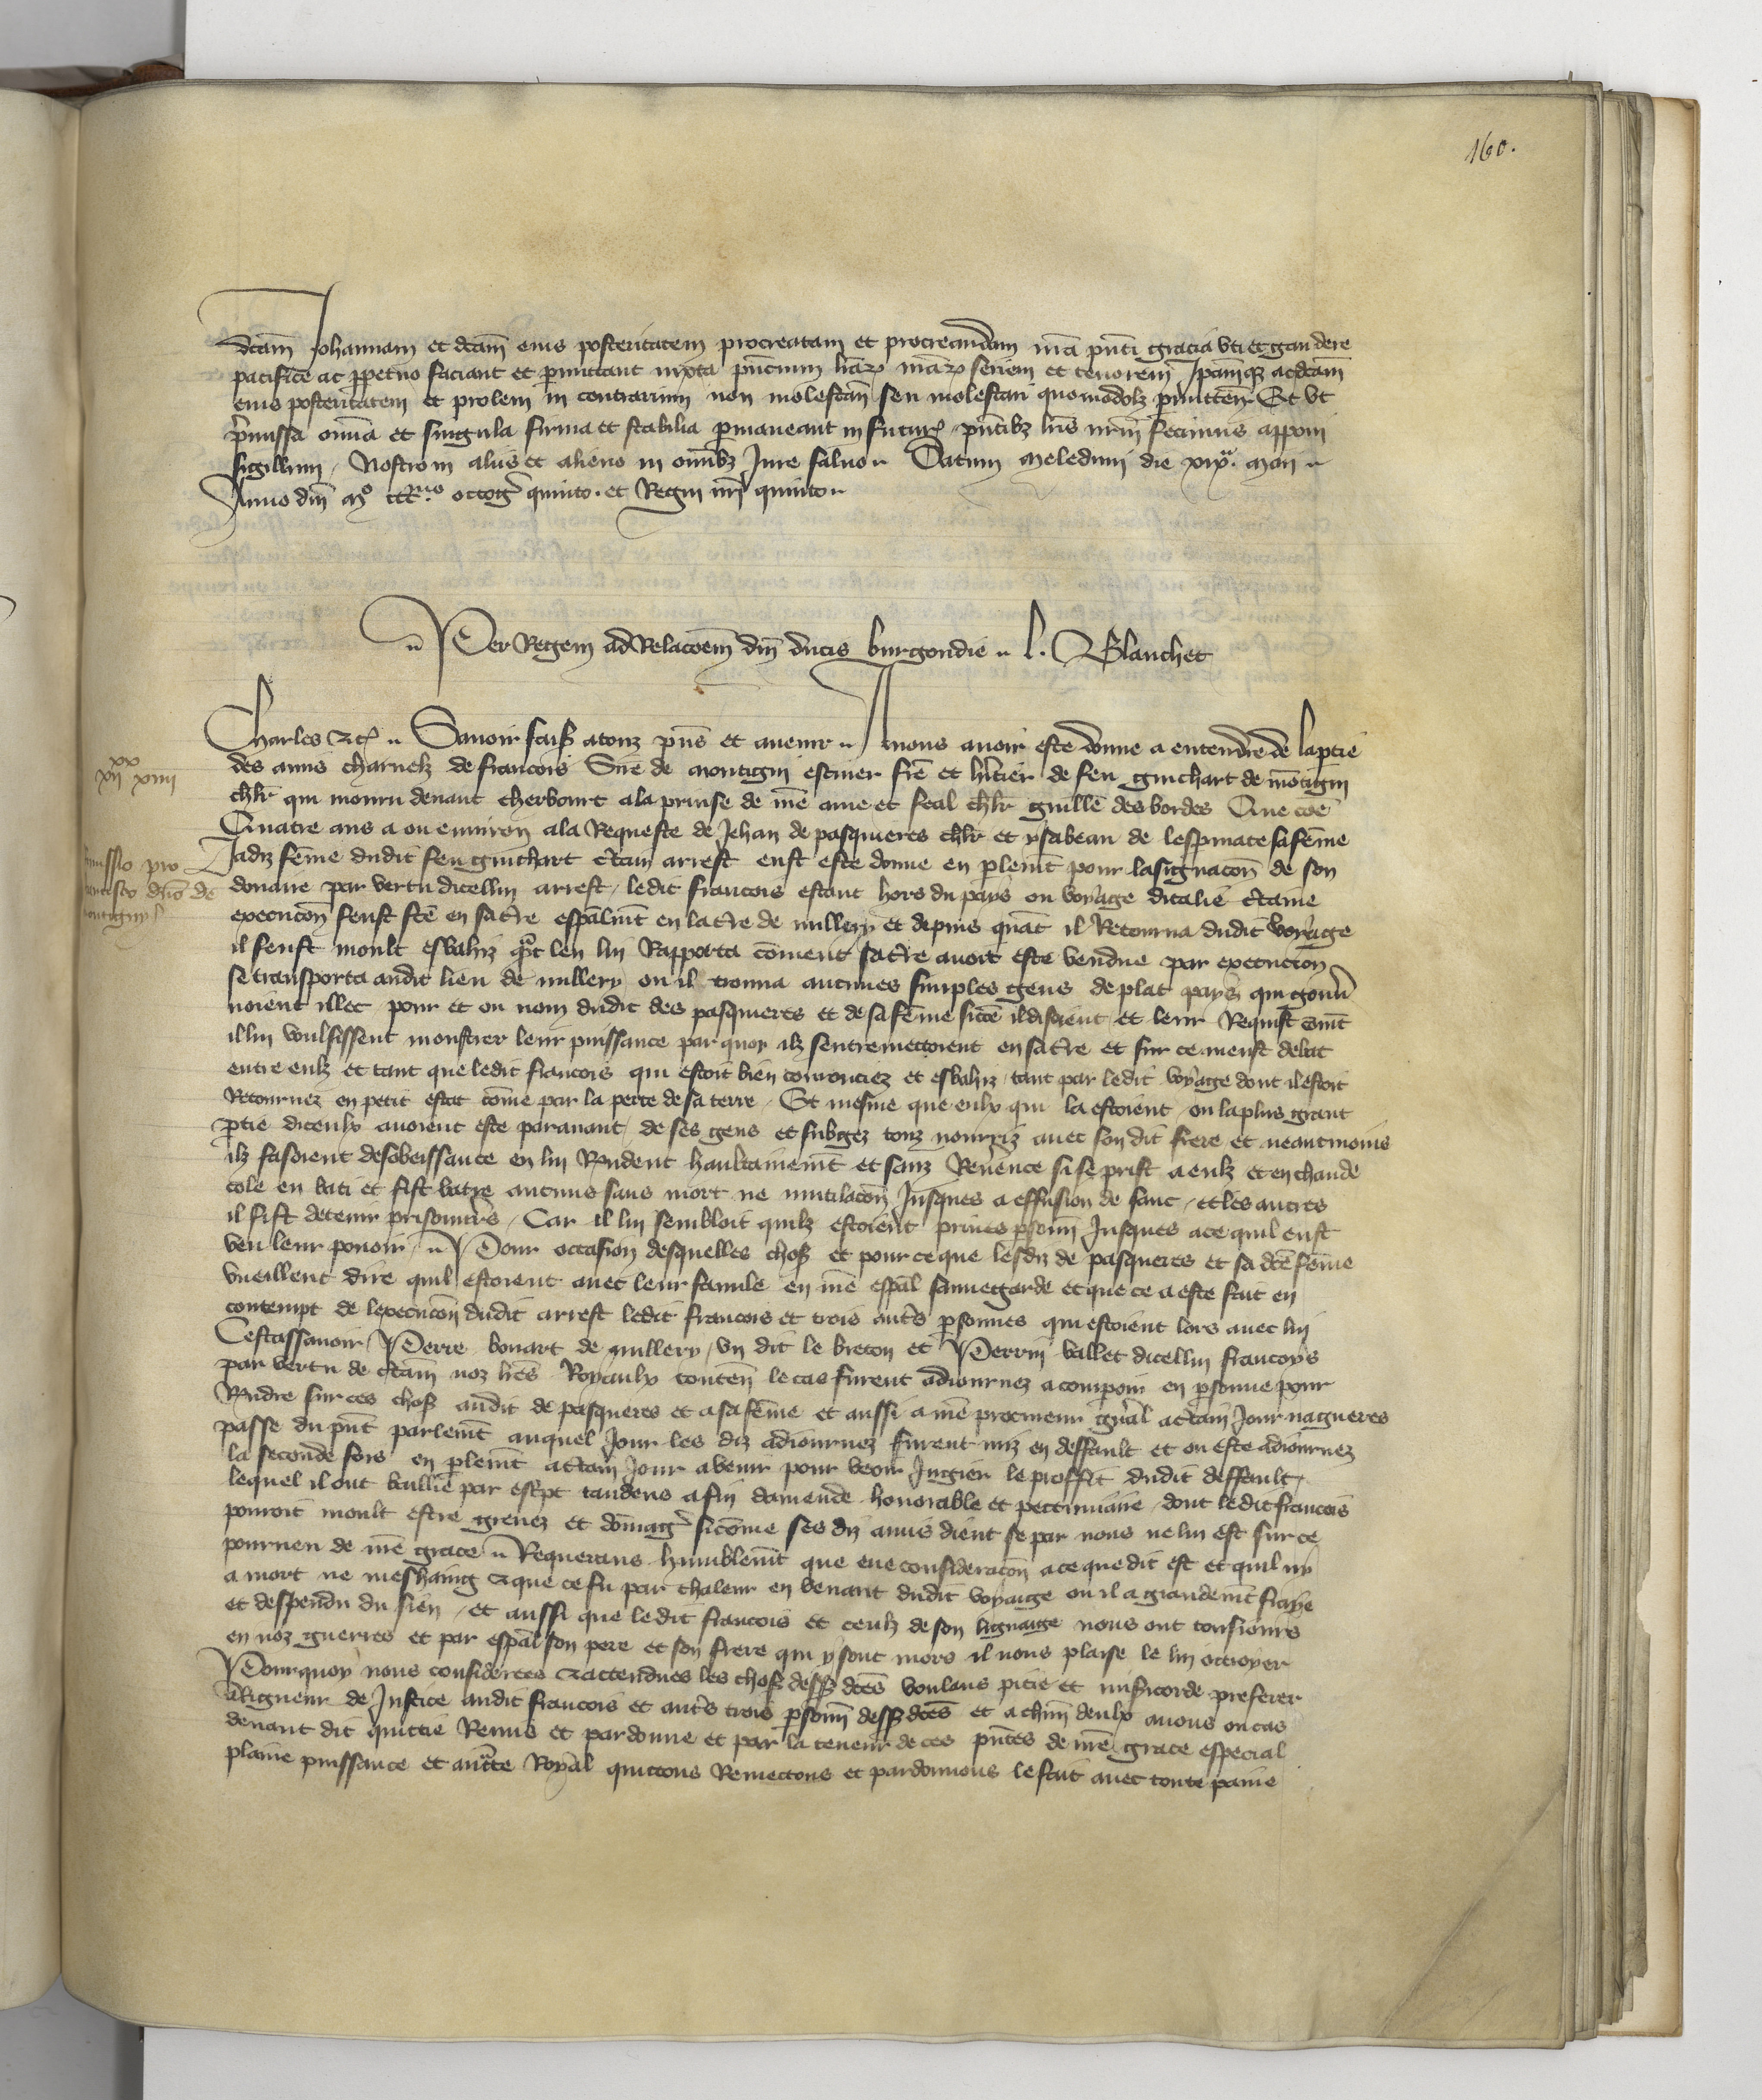 160.
dcam Johannam et dcam eius posteritatem procreatam et procreandam nra pnti gracia uti et gaudere
pacifice ac ppetuo faciant et pmittant iuxta pncium lraz nraz seriem et tenorem Ipamqz acdcam
eius posteritatem et prolem in contrarium non molestan seu molestari quomodolz pmitten Et ut
pmissa omia et singula firma et stabilia pmaneant in futur pntibz lris nrm fecimus apponi
sigillum Nostro in aliis et alieno in omibz Jure saluo Datum meleduni die xix.a maii
Anno dni mo ccc.mo octog quinto. et Regni nri quinto
Per Regem ad Relacoem dni ducis burgondie l. Blanchet
Charles etc Sauoir faiss a touz pns et auenir A nous auoir este donne a entendre de la ptie
xx
xii xiiii
des amis charnelz de francois Sire de montigni escuier fre et hitier de feu guichart de motigni
chlr qui mouru deuant cherbourt a la prinse de nre ame et feal chlr guille des bordes Que coe
Quatre ans a ou enuiron a la Requeste de Jehan de pasquieres chlr et ysabeau de lespinace sa feme
missio pro
Jadiz feme dudit feu guichart ctain arrest eust este donne en plemt pour lasignacon de son
ancisco dno de
douaire par vertu dicellui arrest ledit francois estant hors du pays ou voyage ditalie ctaine
ontigny
execucon feust fce en sa tre espalmt en la tre de millery et depuis quat il Retourna dudit voyage
il feust moult esbahiz qt len lui Rapporta coment sa tre auoit este vendue par execucion
se transporta audit lieu de millery ou il trouua aucunes simples gens de plat pays qui gouu
noient illec pour et ou nom dudit des pasquieres et de sa feme sicoe ilz disoient et leur Requist
il lui voulsissent monstrer leur puissance par quoy ilz sentremectoient en sa tre et sur ce meust debat
entre eulz et tant que ledit francois qui estoit bien courouciez et esbahiz tant par ledit voyage dont il estoit
Retournez en petit estat come par la perte de sa terre Et mesme que eulx qui la estoient ou la plus grant
ptie diceulx auoient este parauant de ses gens et subgez touz nourriz auec son dit frere et neantmoins
ilz fasoient desobeissance en lui Rndent haultainemt et sanz Reuence si se prist a eulz et en chaude
cole en bati et fist batre aucuns sans mort ne mutilacon Jusques a effusion de sanc et les autres
il fist detenir prisonniers Car il lui sembloit quilz estoient priuees psonn Jusques a ce quil eust
veu leur pouoir Pour occasion desquelles choss et pour ce que lesdiz de pasqueres et sa dce feme
vueillent dire quil estoient auec leur famile en nre espal sauuegarde et que ce a este fait en
contempt de lexecucon dudit arrest ledit francois et trois auts psonnes qui estoient lors auec lui
Cestassauoir Pierre bouart de millery vn dit le breton et Perrin vallet dicellui francoys
par vertu de ctain noz lres Royaulx conten le cas furent adiournez a comparoir en psonne pour
Rndre sur ces choss audit de pasqueres et a sa feme et aussi a nre procureur gnral a ctain Jour nagueres
passe du pnt parlemt auquel Jour les diz adiournez furent miz en deffault et ou este adiournez
la seconde fois en plemt a ctain Jour a venir pour veoir Jugier le proffit dudit deffault
lequel il ont baillie par escpt tendens a fin damende honorable et peccuniaire dont ledit francois
pourroit moult estre greuez et domag sicome ses diz amis dient se par nous ne lui est sur ce
pourueu de nre grace Requerans humblemt que eue consideracon a ce que dit est et quil ny
a mort ne meshaing et que ce fu par chaleur en venant dudit voyaige ou il a grandemt fraye
et despendu du sien et aussi que ledit francois et ceulz de son lignaige nous ont tousiours
en noz guerres et par espal son pere et son frere qui y sont mors il nous plaise le lui octroyer
Pourquoy nous considerees et actendues les choss dessz dces voulans pitie et misicorde preferer
a Rigueur de Justice audit francois et auts trois psonn dessz dces et a chun deulx auons ou cas
deuant dit quictie Remis et pardonne et par la teneur de ces pntes de nre grace especial
plaine puissance et aucte Royal quictons Remectons et pardonnons le fait auec toute paine